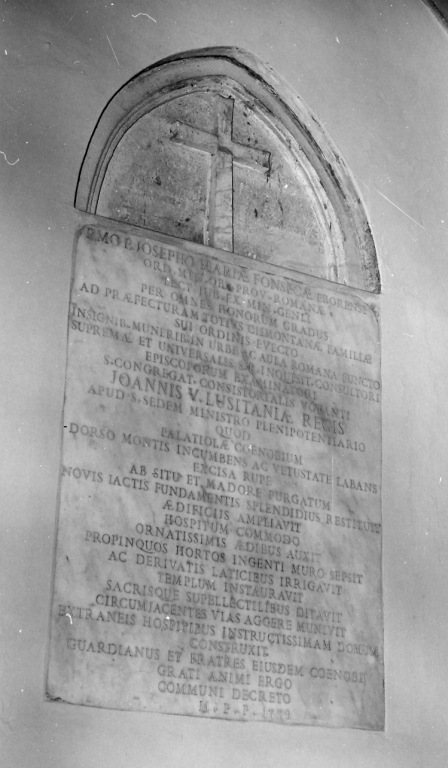 RMO P. JOSEPHO MARIÆ FONSECÆ EBORENSI
ORD. MIN. OBS. PROV. ROMANÆ
LECT. JUB. EX-MIN. GENLI
PER OMNES HONORUM GRADUS
AD PRÆFECTURAM TOTIUS CISMONTANÆ FAMILIÆ
SUI ORDINIS EVECTO
INSIGNIB. MUNERIB. IN URBE AC AULA ROMANA FUNCTO
SUPREMÆ ET UNIVERSALIS INQUISIT. CONSULTORI
EPISCOPORUM EXAMINATORI
S. CONGREGAT. CONSISTORIALIS VOTANTI
JOANNIS V. LUSITANIÆ REGIS
APUD S. SEDEM MINISTRO PLENIPOTENTIARIO
QUOD
PALATIOLÆ COENOBIUM
DORSO MONTIS INCUMBENS AC VETUSTATE LABANS
EXCISA RUPE
AB SITU ET MADORE PURGATUM
NOVIS IACTIS FUNDAMENTIS SPLENDIDIUS RESTITUIT
ÆDIFICIIS AMPLIAVIT
HOSPITUM COMMODO
ORNATISSIMIS ÆDIBUS AUXIT
PROPINQUOS HORTOS INGENTI MURO SEPSIT
AC DERIVATIS LATICIBUS IRRIGAVIT
TEMPLUM INSTAURAVIT
SACRISQUE SUPELLECTILIBUS DITAVIT
CIRCUMJACENTES VIAS AGGERE MUNIVIT
EXTRANEIS HOSPITIBUS INSTRUCTISSIMAM DOMUM
CONSTRUXIT
GUARDIANUS ET FRATRES EIUSDEM COENOBII
GRATI ANIMI ERGO
COMMUNI DECRETO
M. P. P.